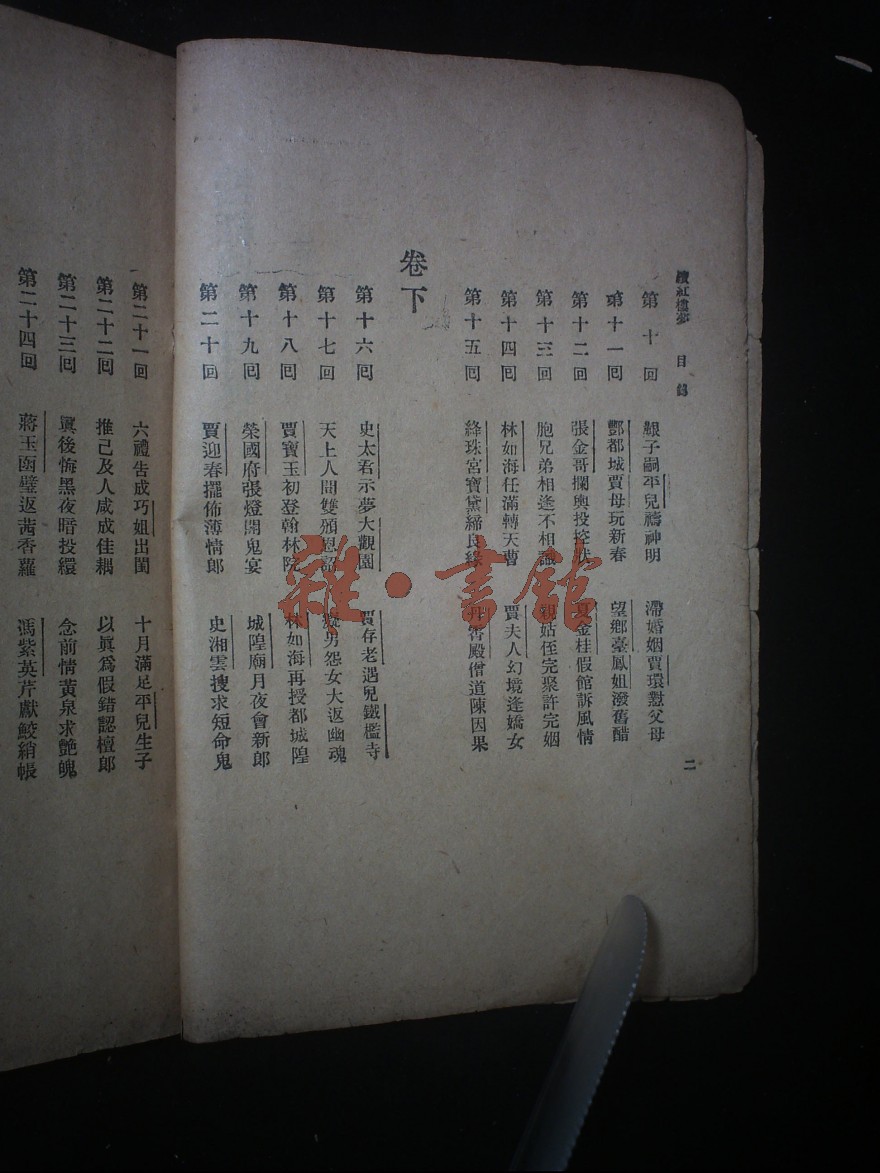 續紅樓夢　目錄
二
第十回　艱子嗣平兒禱神明　滯婚姻賈環懟父母
第十一回　酆都城賈母玩新春　望鄉臺鳳姐潑舊醋
第十二回　張金哥攔輿投控狀　夏金桂假館訴風情
第十三回　胞兄弟相逢不相識　親姑侄完聚許完姻
第十四回　林如海任滿轉天曹　賈夫人幻境逢嬌女
第十五回　絳珠宮寶黛締良緣　丹香殿僧道陳因果
卷下
第十六回　史太君示夢大觀園　賈存老遇兒鐵檻寺
第十七回　天上人間雙頒恩詔　癡男怨女大返幽魂
第十八回　賈寶玉初登翰林院　林如海再授都城隍
第十九回　榮國府張燈開鬼宴　城隍廟月夜會新郎
第二十回　賈迎春擺佈薄情郎　史湘雲搜求短命鬼
第二十一回　六禮告成巧姐出閨　十月滿足平兒生子
第二十二回　推己及人咸成佳耦　以眞爲假錯認檀郎
第二十三回　興後悔黑夜暗投繯　念前情黃泉求艷魄
第二十四回　蔣玉函璧返茜香羅　馮紫英芹獻鮫綃帳
雜·書館